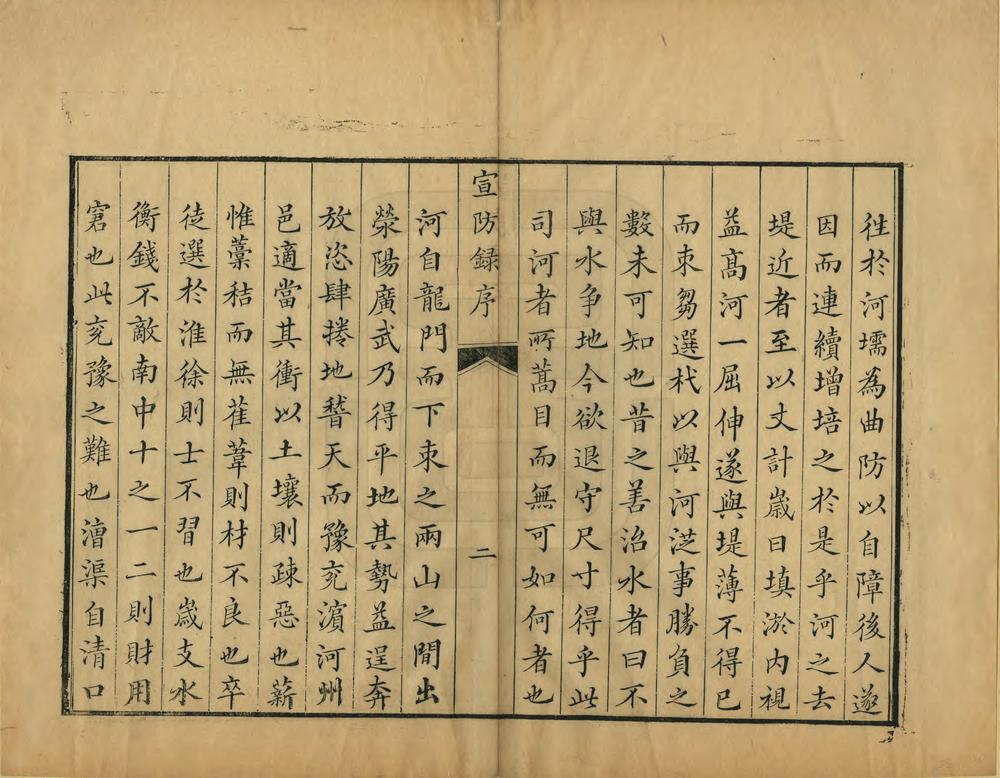 徃於河壖為曲防以自障後人遂
因而連續增培之於是乎河之去
堤近者至以丈計嵗日填淤内視
益髙河一屈伸遂與堤薄不得已
而朿芻選杙以與河淫事勝負之
數未可知也昔之善治水者曰不
與水争地今欲退守尺寸得乎此
司河者所蒿目而無可如何者也
宣防録序
二
河自龍門而下朿之兩山之間出
滎陽廣武乃得平地其勢益逞奔
放恣肆捲地朁天而豫兖濵河州
邑適當其衝以土壤則疎惡也薪
惟藁秸而無萑葦則材不良也卒
徒選於淮徐則士不習也嵗支水
衡錢不敵南中十之一二則財用
窘也此兖豫之難也漕渠自清口